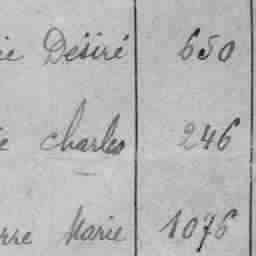 ie Désiré 650
e Charles 246
rre Marie 1076